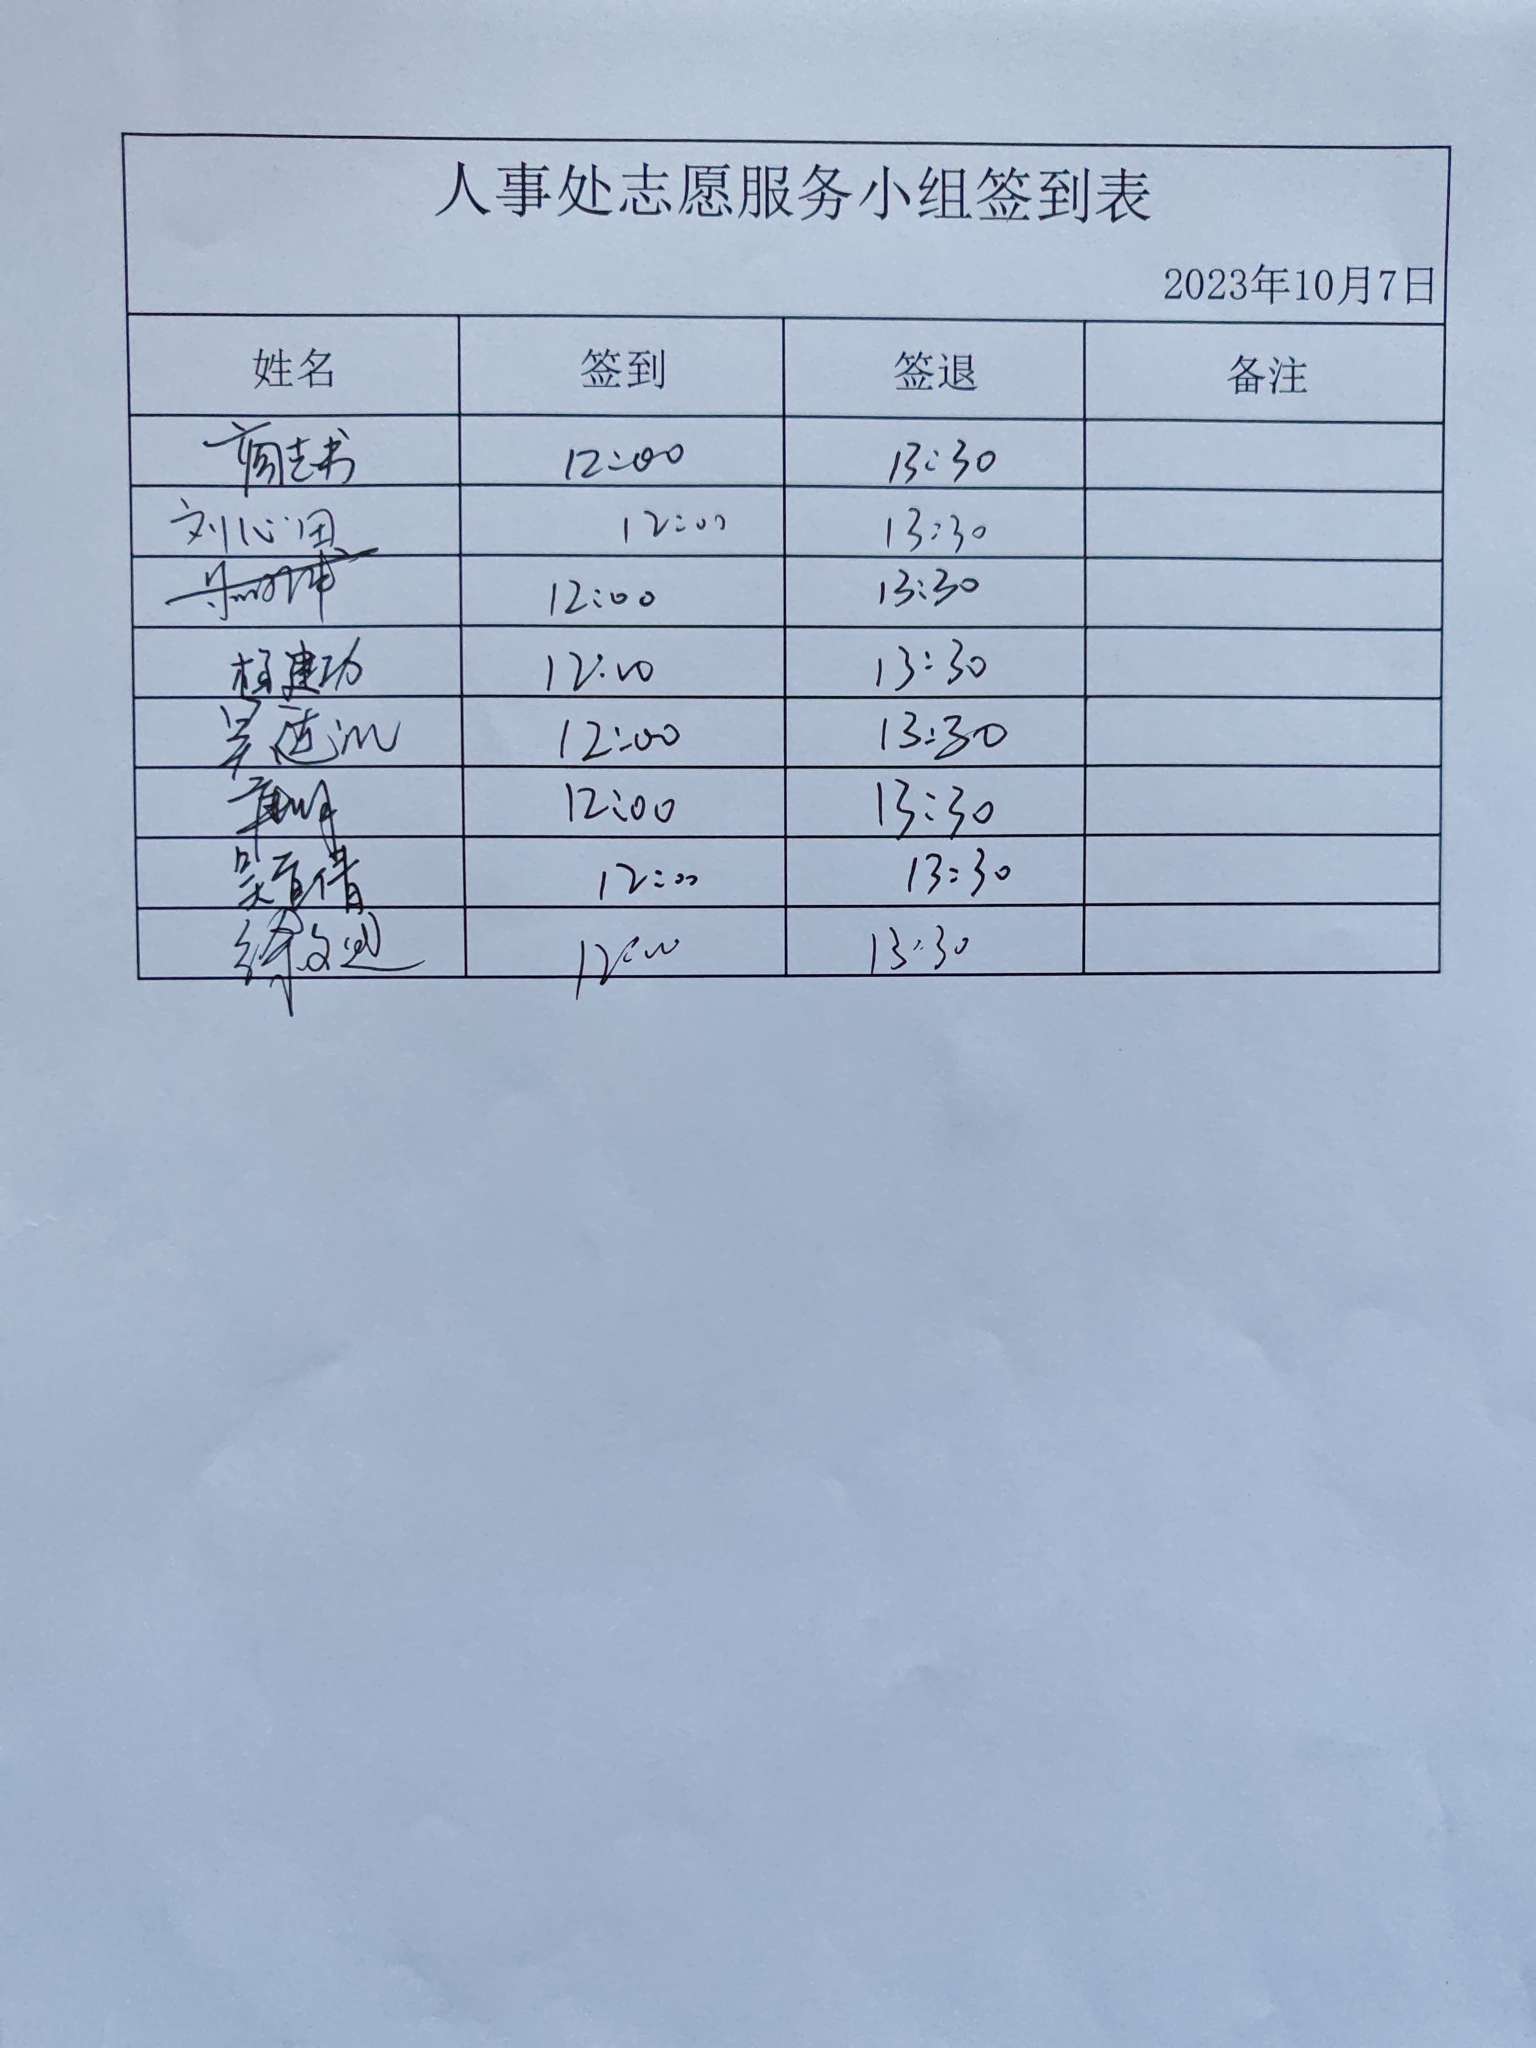 人事处志愿服务小组签到表
2023年10月7日
姓名 签到 签退 备注
12:00 13:30
刘心田 12:00 13:30
12:00 13:30
杨建功 12:00 13:30
吴 12:00 13:30
12:00 13:30
吴百倩 12:00 13:30
徐文 12:00 13:30